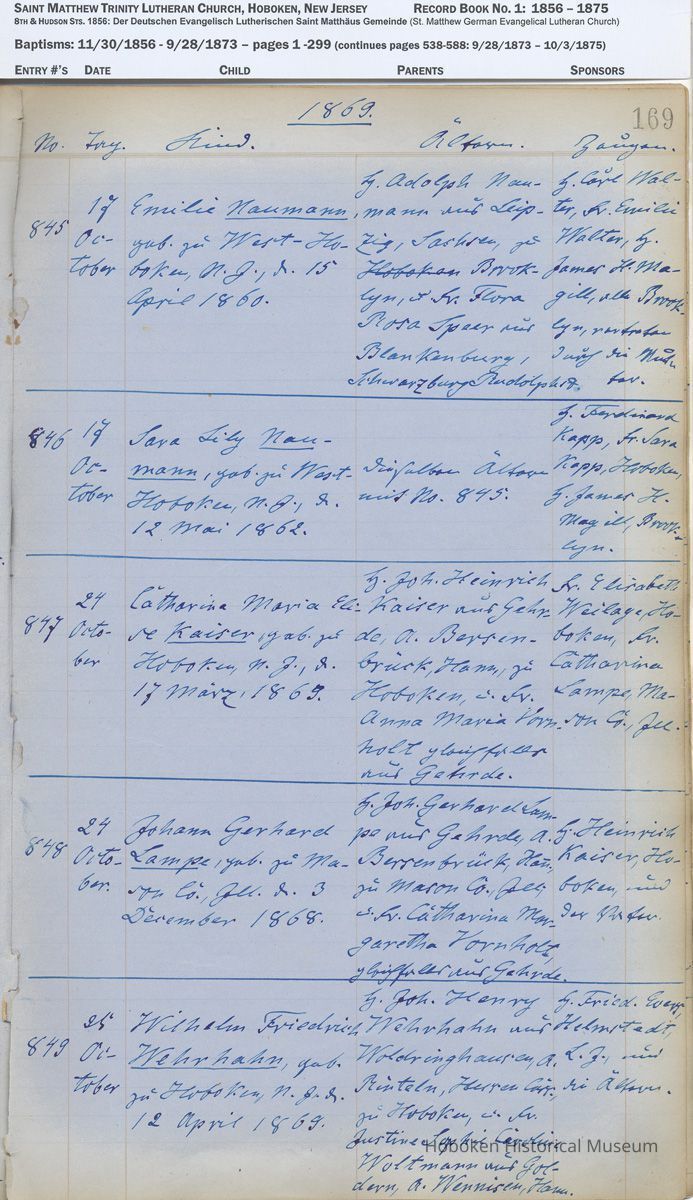 SAINT MATTHEW TRINITY LUTHERAN CHURCH, HOBOKEN, NEW JERSEY RECORD BOOK NO. 1: 1856 – 1875
8TH & HUDSON STS. 1856: Der Deutschen Evangelisch Lutherischen Saint Matthäus Gemeinde (St. Matthew German Evangelical Lutheran Church)
Baptisms: 11/30/1856 - 9/28/1873 – pages 1 -299 (continues pages 538-588: 9/28/1873 – 10/3/1875)
ENTRY #'S DATE CHILD PARENTS SPONSORS
1869.
169
No. Tag. Kind. Ältern. Zeugen.
845
17
Oc-
tober
Emilie Naumann,
geb. zu West-Ho-
boken, N. J., d. 15
April 1860.
H. Adolph Nau-
mann aus Leip-
zig, Sachsen, zu
Hoboken Brook-
lyn, u. Fr. Flora
Rosa Speer aus
Blankenburg,
Schwarzburg Rudolphst.
H. Carl Wal-
ter, Fr. Emilie
Walter, H.
James H. Ma-
gill, alle Brook-
lyn, vertreten
durch die Mut-
ter.
846
17
Oc-
tober
Sara Lily Nau-
mann, geb. zu West-
Hoboken, N. J., d.
12 Mai 1862.
Dieselben Ältern
mit No. 845.
H. Ferdinand
Kapp, Fr. Sara
Kapp, Hoboken,
H. James H.
Magill, Brook-
lyn.
847
24
Octo-
ber
Catharina Maria Eli-
se Kaiser, geb. zu
Hoboken, N. J., d.
17 März, 1869.
H. Joh. Heinrich
Kaiser aus Gehr-
de, A. Bersen-
brück, Hann., zu
Hoboken, u. Fr.
Anna Maria Vorn-
holt gleichfalls
aus Gehrde.
Fr. Elisabeth
Weilage, Ho-
boken, Fr.
Catharina
Lampe, Ma-
son Co., Ill.
848
24
Octo-
ber.
Johann Gerhard
Lampe, geb. zu Ma-
son Co., Ill. d. 3
December 1868.
H. Joh. Gerhard Lam-
pe aus Gehrde, A.
Bersenbrück, Han,
zu Mason Co., Ill.
u. Fr. Catharina Mar-
garetha Vornholt,
gleichfalls aus Gehrde.
H. Heinrich
Kaiser, Ho-
boken, und
der Vater.
849
25
Oc-
tober
Wilhelm Friedrich
Wehrhahn, geb.
zu Hoboken, N. J. d.
12 April 1869.
H. Joh. Henry
Wehrhahn aus
Woldringhausen, A.
Rinteln, Hessen
zu Hoboken, u. Fr.
Justine Sophie Caroline
Woltmann aus Gol-
dern, A. Wennisen, Hann.
H. Fried. Evers,
Helmstadt,
L. I., und
die Ältern.
Hoboken Historical Museum